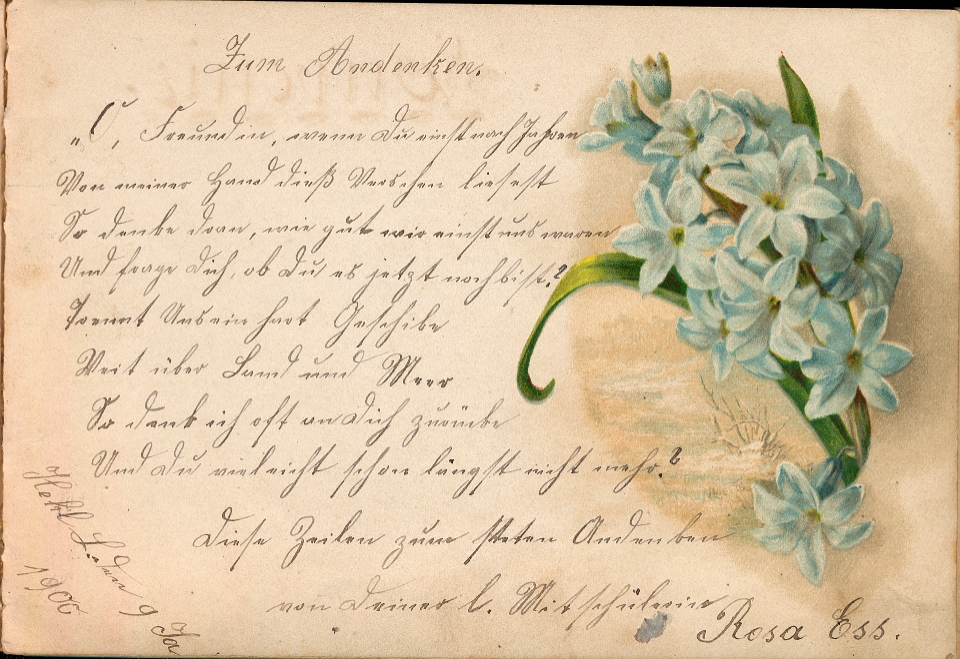 Zum Andenken.
„O, Freundin, wenn Du einst nach Jahren
Von meiner Hand dieß Verschen liesest
So denke dran, wie gut wir einst uns waren
Und frage Dich, ob Du es jetzt noch bist.?
Trennt Uns ein hart Geschike
Weit über Land und Meer
So denk ich oft an Dich zurüke
Und Du vieleicht schon längst nicht mehr.?
Diese Zeilen zum steten Andenken
von Deiner l. Mitschülerin
Rosa Ess.
den 9 Ja
1900